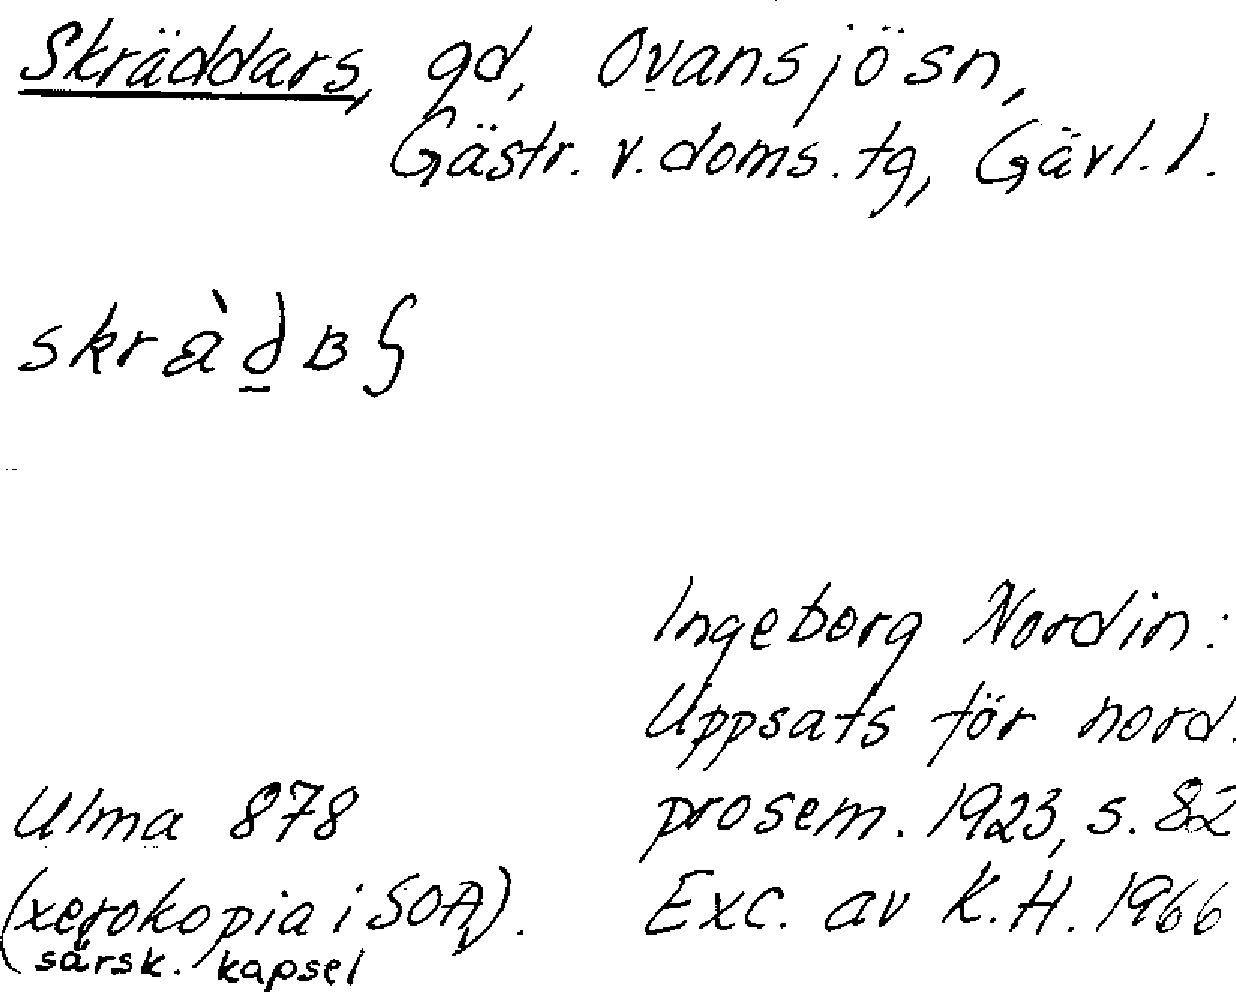 Skräddars, gd, Ovansjö sn,
Gästr. v. doms. tg, Gävl. l.
Ingeborg Nordin:
Uppsats för nord.
prosem. 1923, s. 82
Exc. av K.H. 1966
Ulma 878
(xerokopia i SOA).
särsk. kapsel